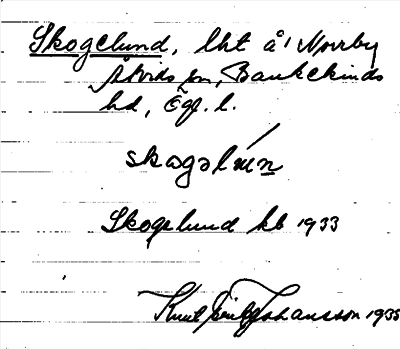 Skogelund, lht å Norrby
Åtvids sn, Bankekinds
hd, Ögl. l.
skogəlún
Skogelund kb 1933
Knut Johansson 1935